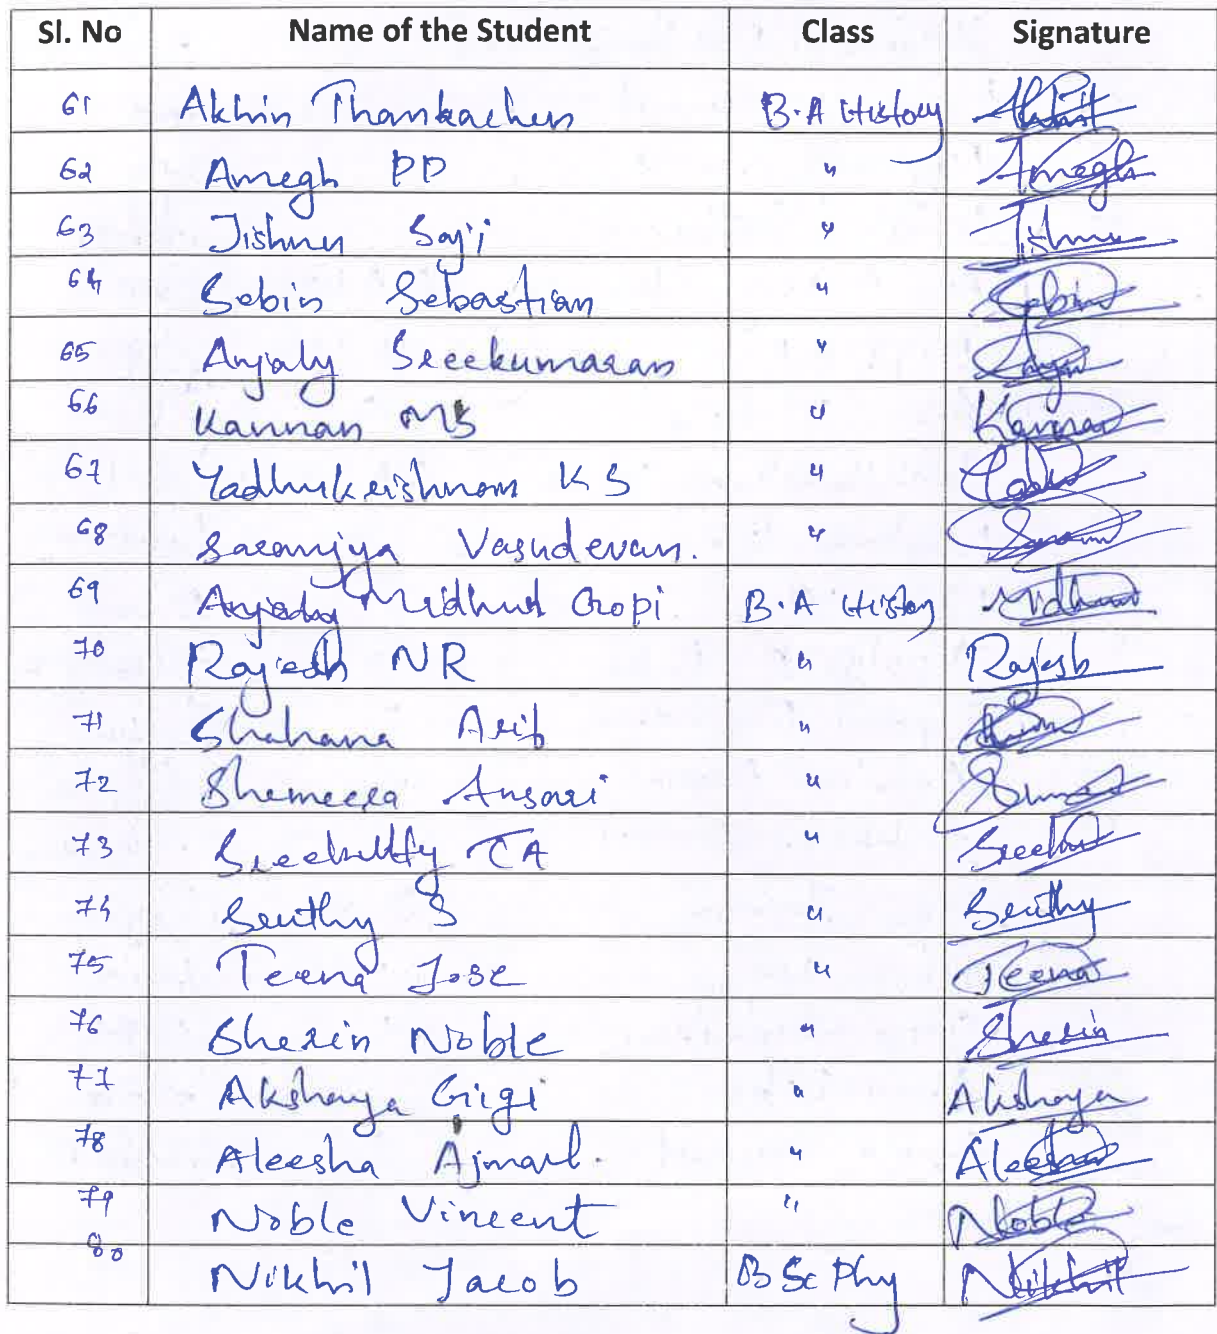 Sl. No Name of the Student Class Signature
61 Akhin Thankachen B.A History
62 Amegh PP " Amegh
63 Jishnu Saji " Jishnu
64 Sebin Sebastian " Sebin
65 Anjaly Sreekumaran "
66 Kannan MS " Kannan
67 Yadhukrishnan K S "
68 Saranjya Vasudevan. "
69 Midhun Gopi B.A History Midhun
70 Rajesh NR " Rajesh
71 Shahana Arif "
72 Shemeera Ansari "
73 Sreekutty TA "
74 Sruthy S " Sruthy
75 Teena Jose " Teena
76 Sherin Noble " Sherin
77 Akshaya Gigi " Akshaya
78 Aleesha Ajmal. " Aleesha
79 Noble Vincent " Noble
80 Nikhil Jacob B Sc Phy Nikhil